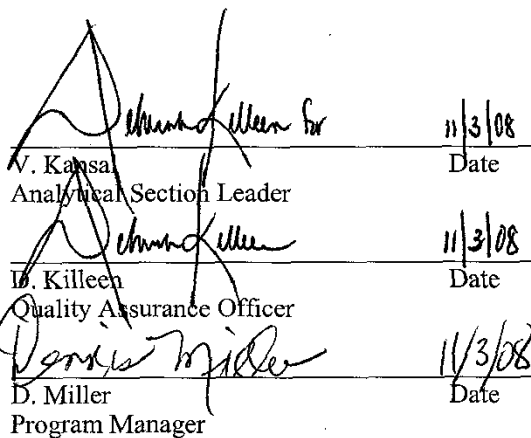 Killeen for 11/3/08
V. Kansal Date
Analytical Section Leader
Killeen 11/3/08
D. Killeen Date
Quality Assurance Officer
Dennis Miller 11/3/08
D. Miller Date
Program Manager